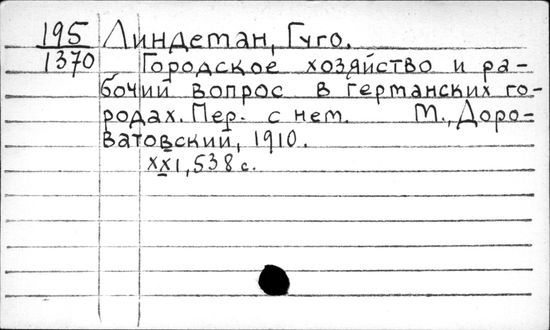 195 Линдеман, Гуго.
1370 Городское хозяйство и ра-
бочий вопрос в германских го-
родах. Пер. с нем. М., Доро-
ватовский, 1910.
XXI, 538 с.